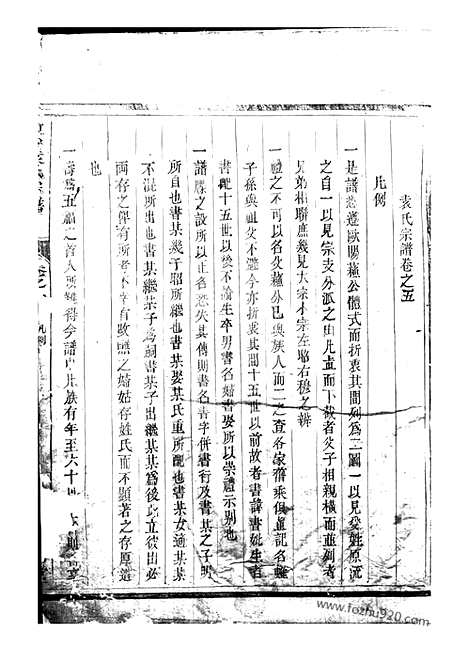 袁氏宗譜卷之五
凡例
一是譜悉遵歐陽蘓公體式而折衷其間列爲二圖一以見受姓原流
之自一以見宗支分派之由凡直而下敘者父子相親横而並列者
兄弟相聯庶幾見大宗小宗左昭右穆之辨
一禮之不可以名父蘓公已與族人而二之查各家舊乘俱直記名雖
子孫與祖父不避今亦折衷其間十五世以前故者書諱書妣生者
書配十五世以後不論生卒男書名婦書娶所以崇禮示别也
一譜牒之設所以正名恐失其傳則書名書字併書行及書某之子明
所自也書某幾子昭所繼也書某娶某氏重所配也書某女適某某
不混所出也書某繼某子爲嗣書某子出繼某某爲後此立彼出必
兩存之俾有所考不幸有敗臨之婦姑存姓氏而不顯著之存原道
也
一壽爲五福之首人所難得今譜內凡族有年至六十
凡例
www.fozhu920.com